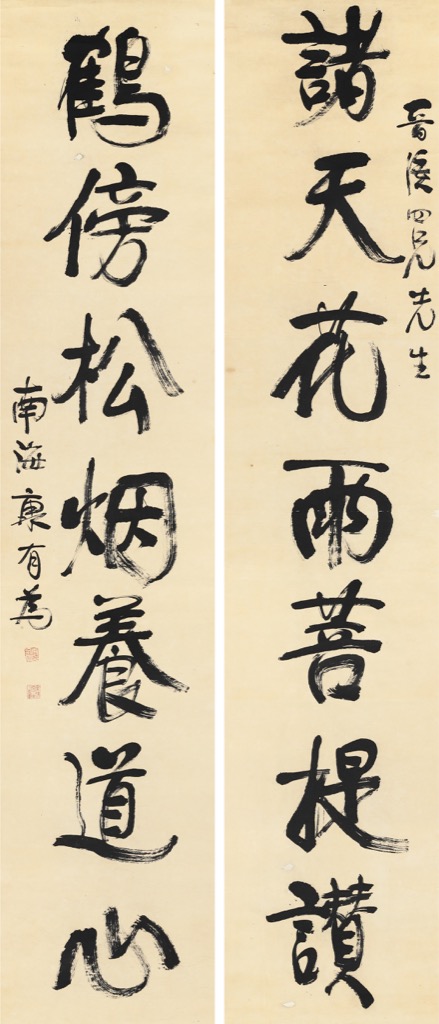 晉溪四兄先生
諸天花雨菩提讃
鶴傍松烟養道心
南海康有為